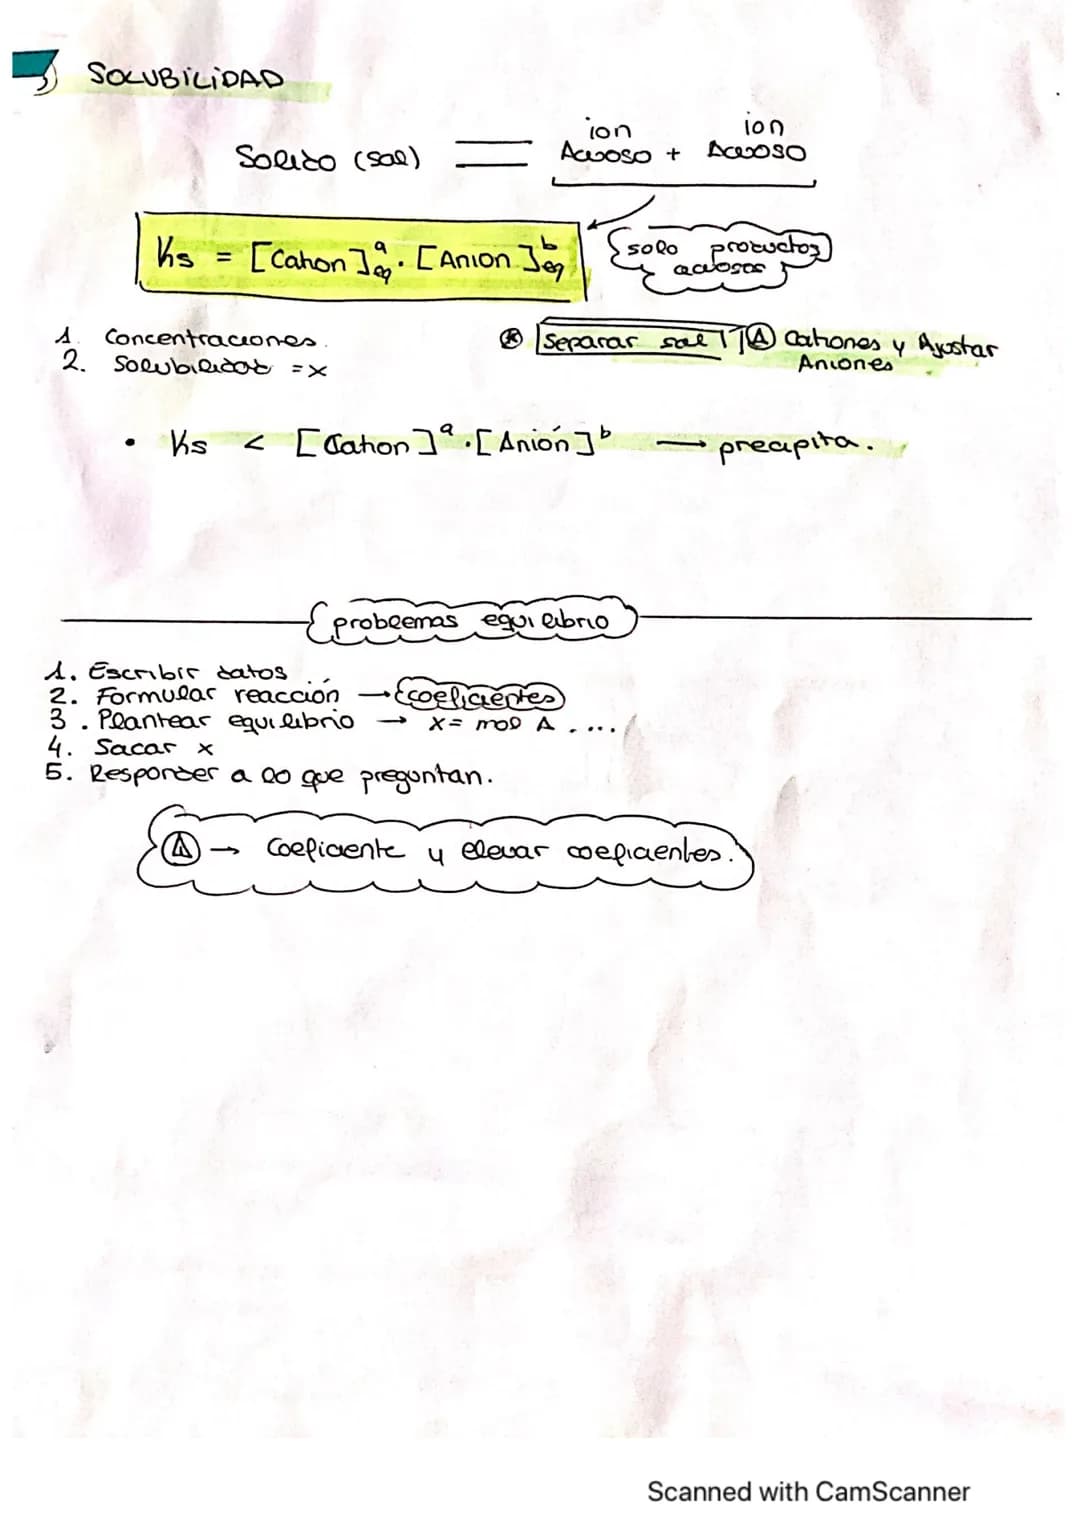 SOLUBILIDAD
Solido (sal) = ion Acuoso + ion Acuoso
Ks = [Cation]ᵃeq · [Anion]ᵇeq
solo productos acuosos
1. Concentraciones.
2. Solubilidad = x
Separar sal
Cationes y Aniones
Ajustar
• Ks < [Cation]ᵃ · [Anión]ᵇ → precipita.
problemas equilibrio
1. Escribir datos
2. Formular reacción → coeficientes
3. Plantear equilibrio → x = mol A ....
4. Sacar x
5. Responder a lo que preguntan.
⚠ → Coeficiente y elevar coeficientes.
Scanned with CamScanner